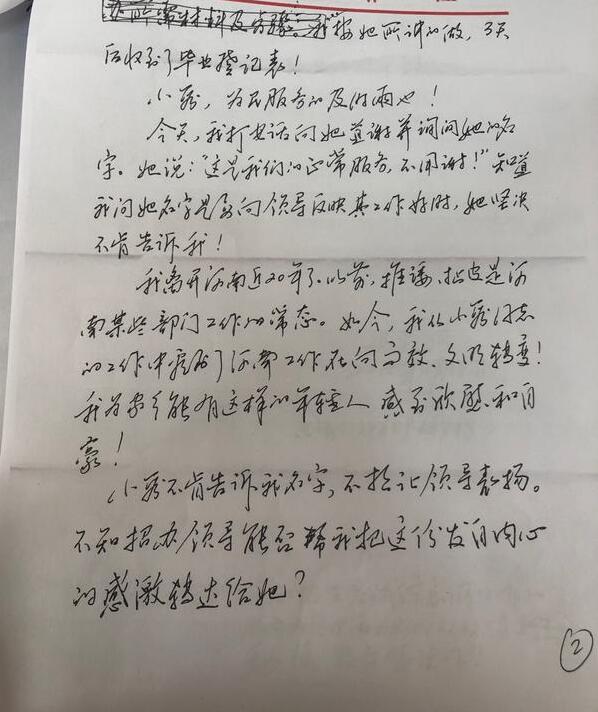 我按她所讲的做，3天
后收到了毕业登记表！
小骆，为民服务的及时雨也！
今天，我打电话向她道谢并询问她的名
字。她说：“这是我们的正常服务，不用谢！”知道
我问她名字是要向领导反映其工作好时，她坚决
不肯告诉我！
我离开河南近20年了。以前，推诿、扯皮是河
南某些部门工作的常态。如今，我从小骆同志
的工作中看到了河南工作在向高效、文明转变！
我为家乡能有这样的年轻人感到欣慰和自
豪！
小骆不肯告诉我名字，不想让领导表扬。
不知招办领导能否帮我把这份发自内心
的感激转达给她？
2